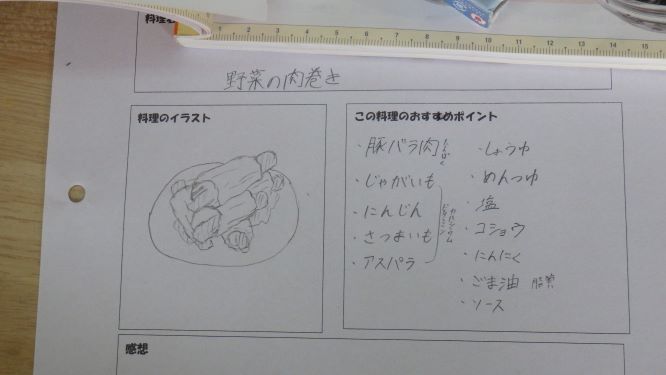 料理
野菜の肉巻き
料理のイラスト
この料理のおすすめポイント
・豚バラ肉 たんぱく
・じゃがいも
・にんじん
・さつまいも
・アスパラ
カルシウム
ビタミン
・しょうゆ
・めんつゆ
・塩
・コショウ
・にんにく
・ごま油 脂質
・ソース
感想
1 2 3 4 5 6 7 8 9 10 11 12 13 14 15